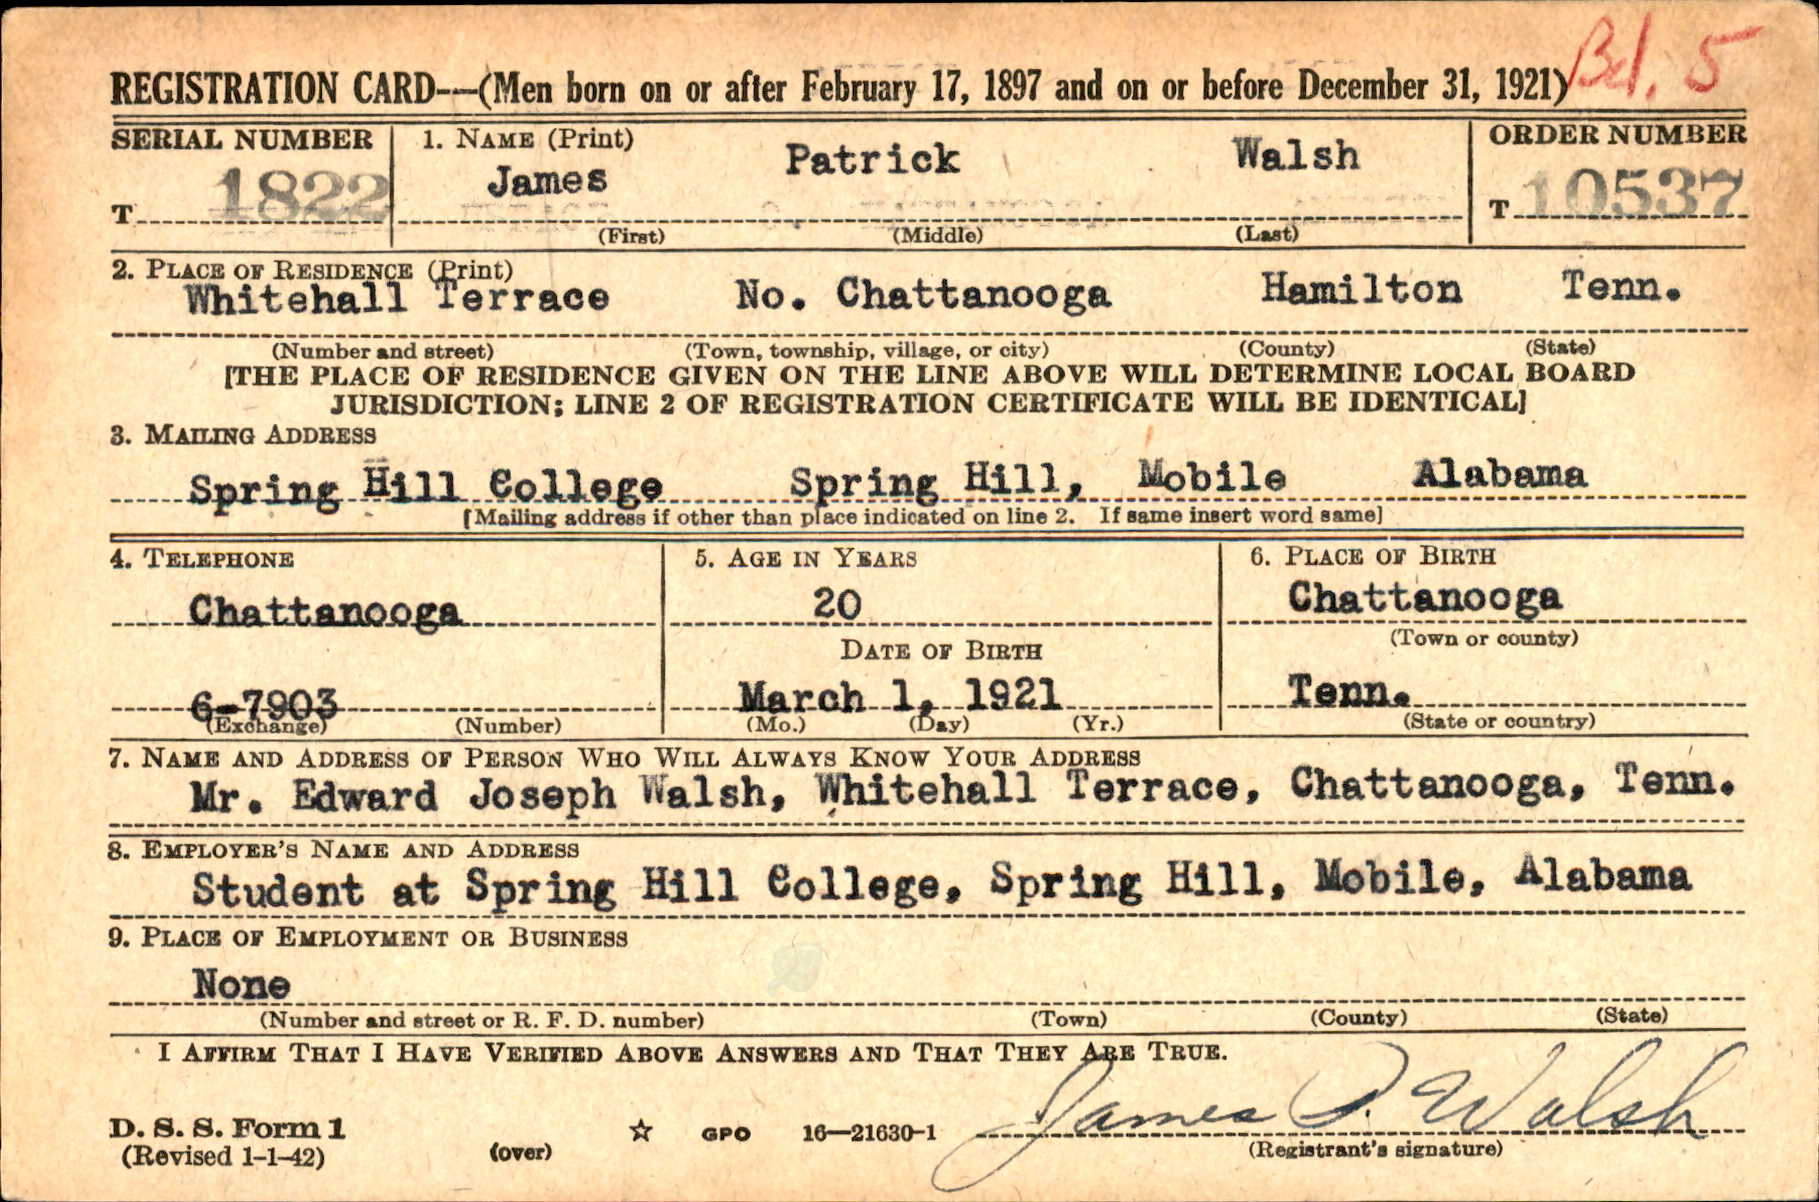 Bd. 5
REGISTRATION CARD—(Men born on or after February 17, 1897 and on or before December 31, 1921)
SERIAL NUMBER 1. NAME (Print) ORDER NUMBER
James Patrick Walsh
T 1822 T 10537
(First) (Middle) (Last)
2. PLACE OF RESIDENCE (Print)
Whitehall Terrace No. Chattanooga Hamilton Tenn.
(Number and street) (Town, township, village, or city) (County) (State)
[THE PLACE OF RESIDENCE GIVEN ON THE LINE ABOVE WILL DETERMINE LOCAL BOARD
JURISDICTION; LINE 2 OF REGISTRATION CERTIFICATE WILL BE IDENTICAL]
3. MAILING ADDRESS
Spring Hill College Spring Hill, Mobile Alabama
[Mailing address if other than place indicated on line 2. If same insert word same]
4. TELEPHONE 5. AGE IN YEARS 6. PLACE OF BIRTH
Chattanooga 20 Chattanooga
DATE OF BIRTH (Town or county)
6-7903 March 1, 1921 Tenn.
(Exchange) (Number) (Mo.) (Day) (Yr.) (State or country)
7. NAME AND ADDRESS OF PERSON WHO WILL ALWAYS KNOW YOUR ADDRESS
Mr. Edward Joseph Walsh, Whitehall Terrace, Chattanooga, Tenn.
8. EMPLOYER'S NAME AND ADDRESS
Student at Spring Hill College, Spring Hill, Mobile, Alabama
9. PLACE OF EMPLOYMENT OR BUSINESS
None
(Number and street or R. F. D. number) (Town) (County) (State)
I AFFIRM THAT I HAVE VERIFIED ABOVE ANSWERS AND THAT THEY ARE TRUE.
James P. Walsh
D. S. S. Form 1
(Revised 1-1-42) (over) ☆ GPO 16—21630-1 (Registrant's signature)